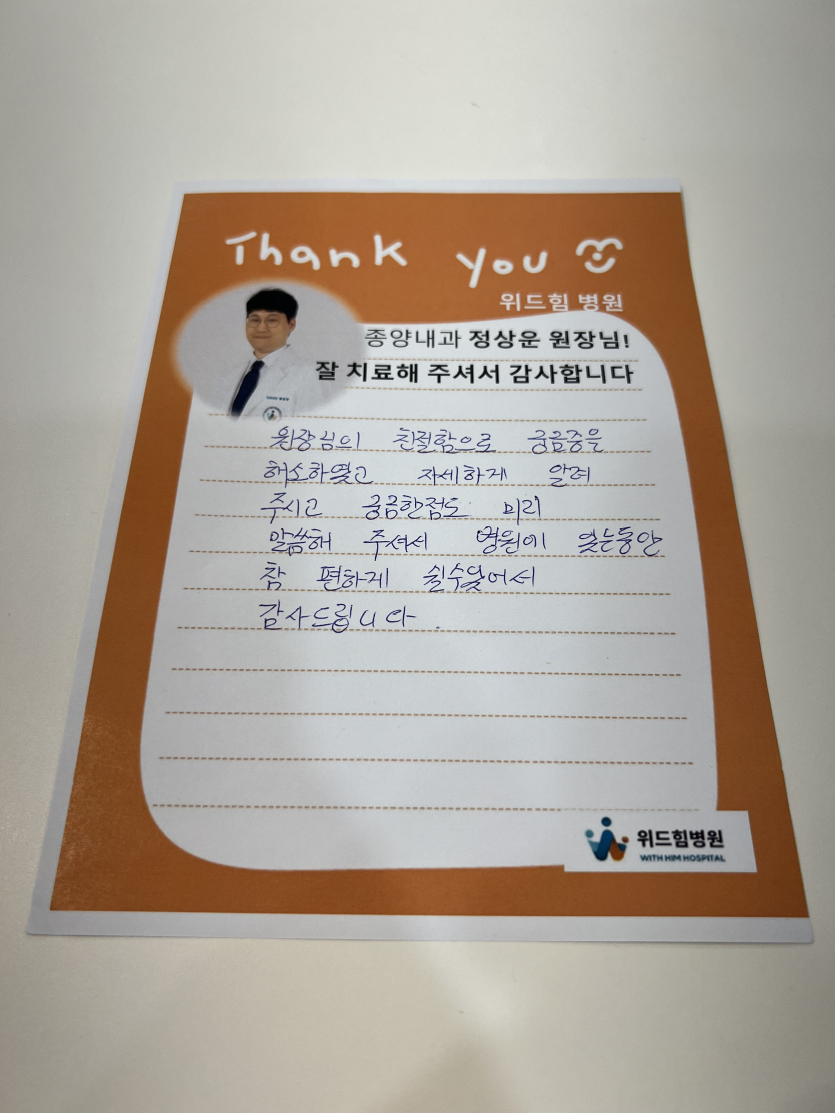 Thank you
위드힘 병원
종양내과 정상운 원장님!
잘 치료해 주셔서 감사합니다
원장님의 친절함으로 궁금증을
해소하였고 자세하게 알려
주시고 궁금한점도 미리
말씀해 주셔서 병원에 있는동안
참 편하게 쉴수있어서
감사드립니다.
위드힘병원
WITH HIM HOSPITAL